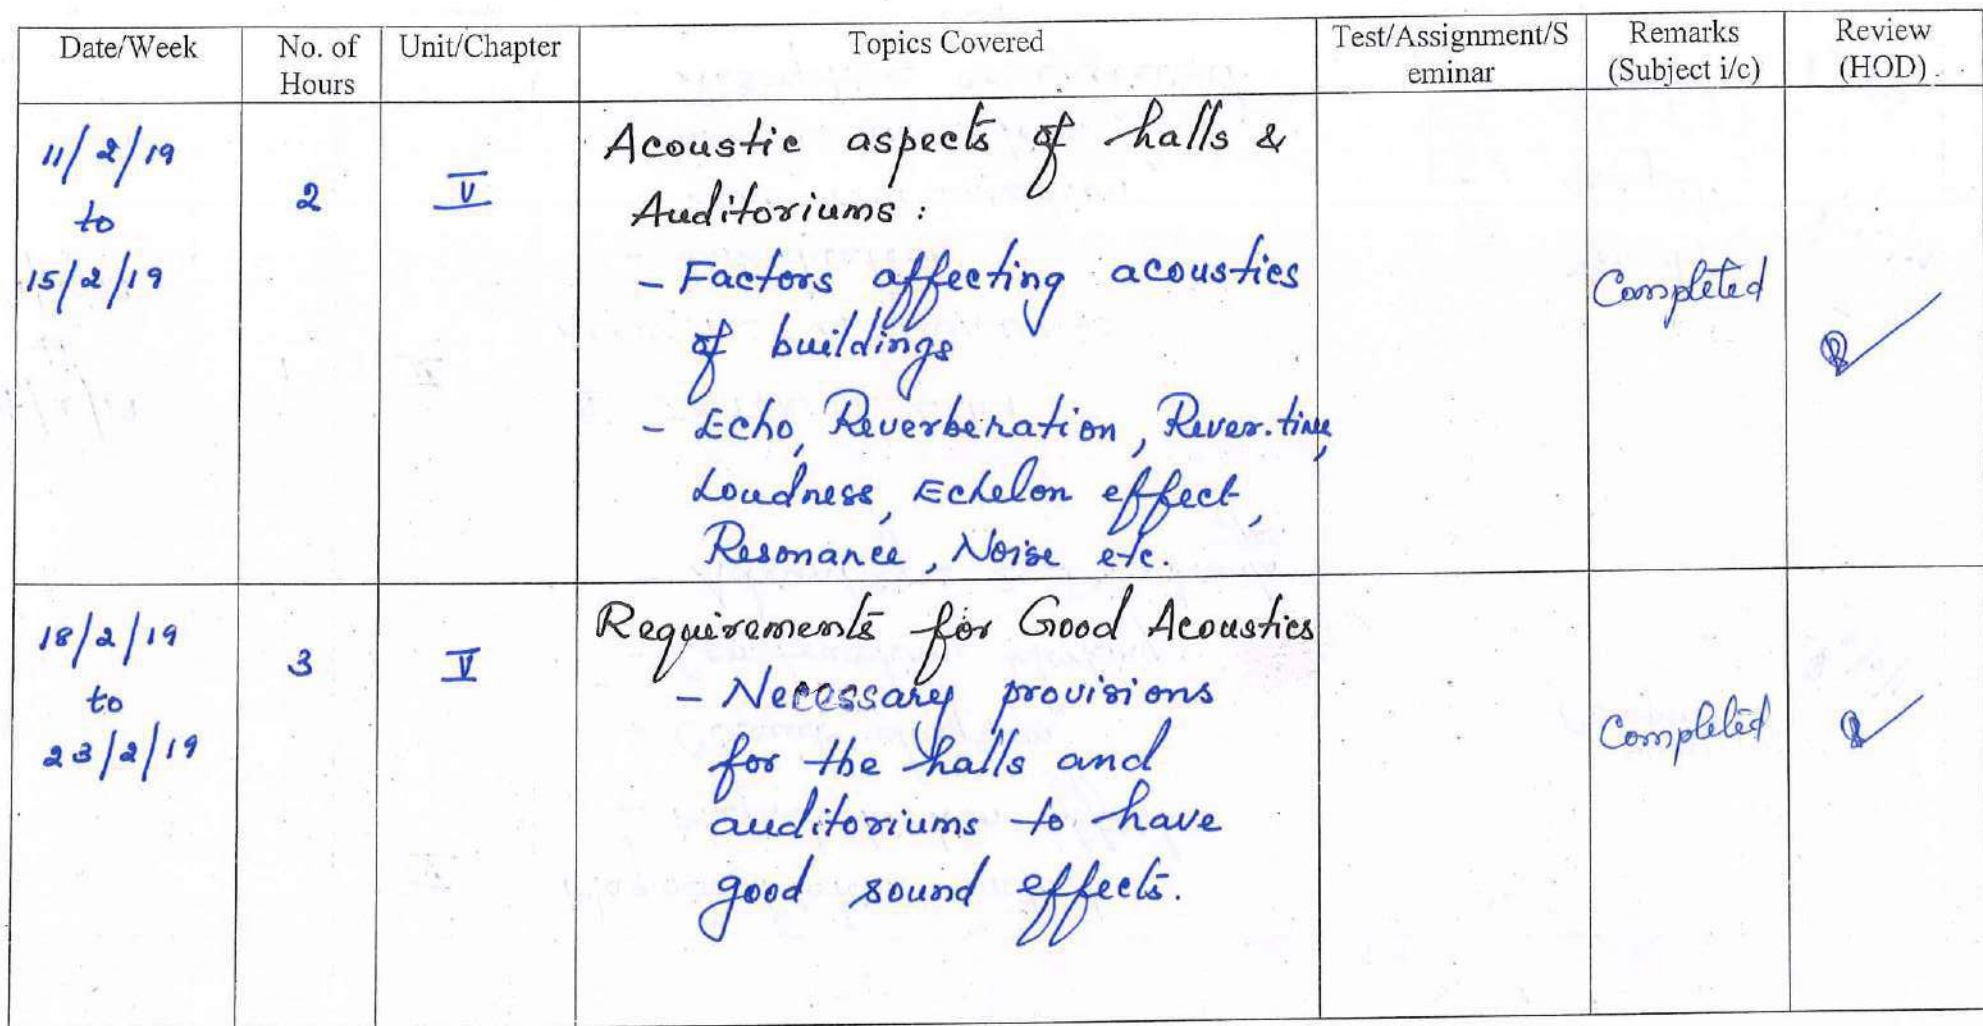 Date/Week No. of Hours Unit/Chapter Topics Covered Test/Assignment/S eminar Remarks (Subject i/c) Review (HOD)
11/2/19
to
15/2/19
2
V
Acoustic aspects of halls &
Auditoriums :
- Factors affecting acoustics
of buildings
- Echo, Reverberation, Rever. time,
Loudness, Echelon effect,
Resonance, Noise etc.
Completed
18/2/19
to
23/2/19
3
V
Requirements for Good Acoustics
- Necessary provisions
for the halls and
auditoriums to have
good sound effects.
Completed